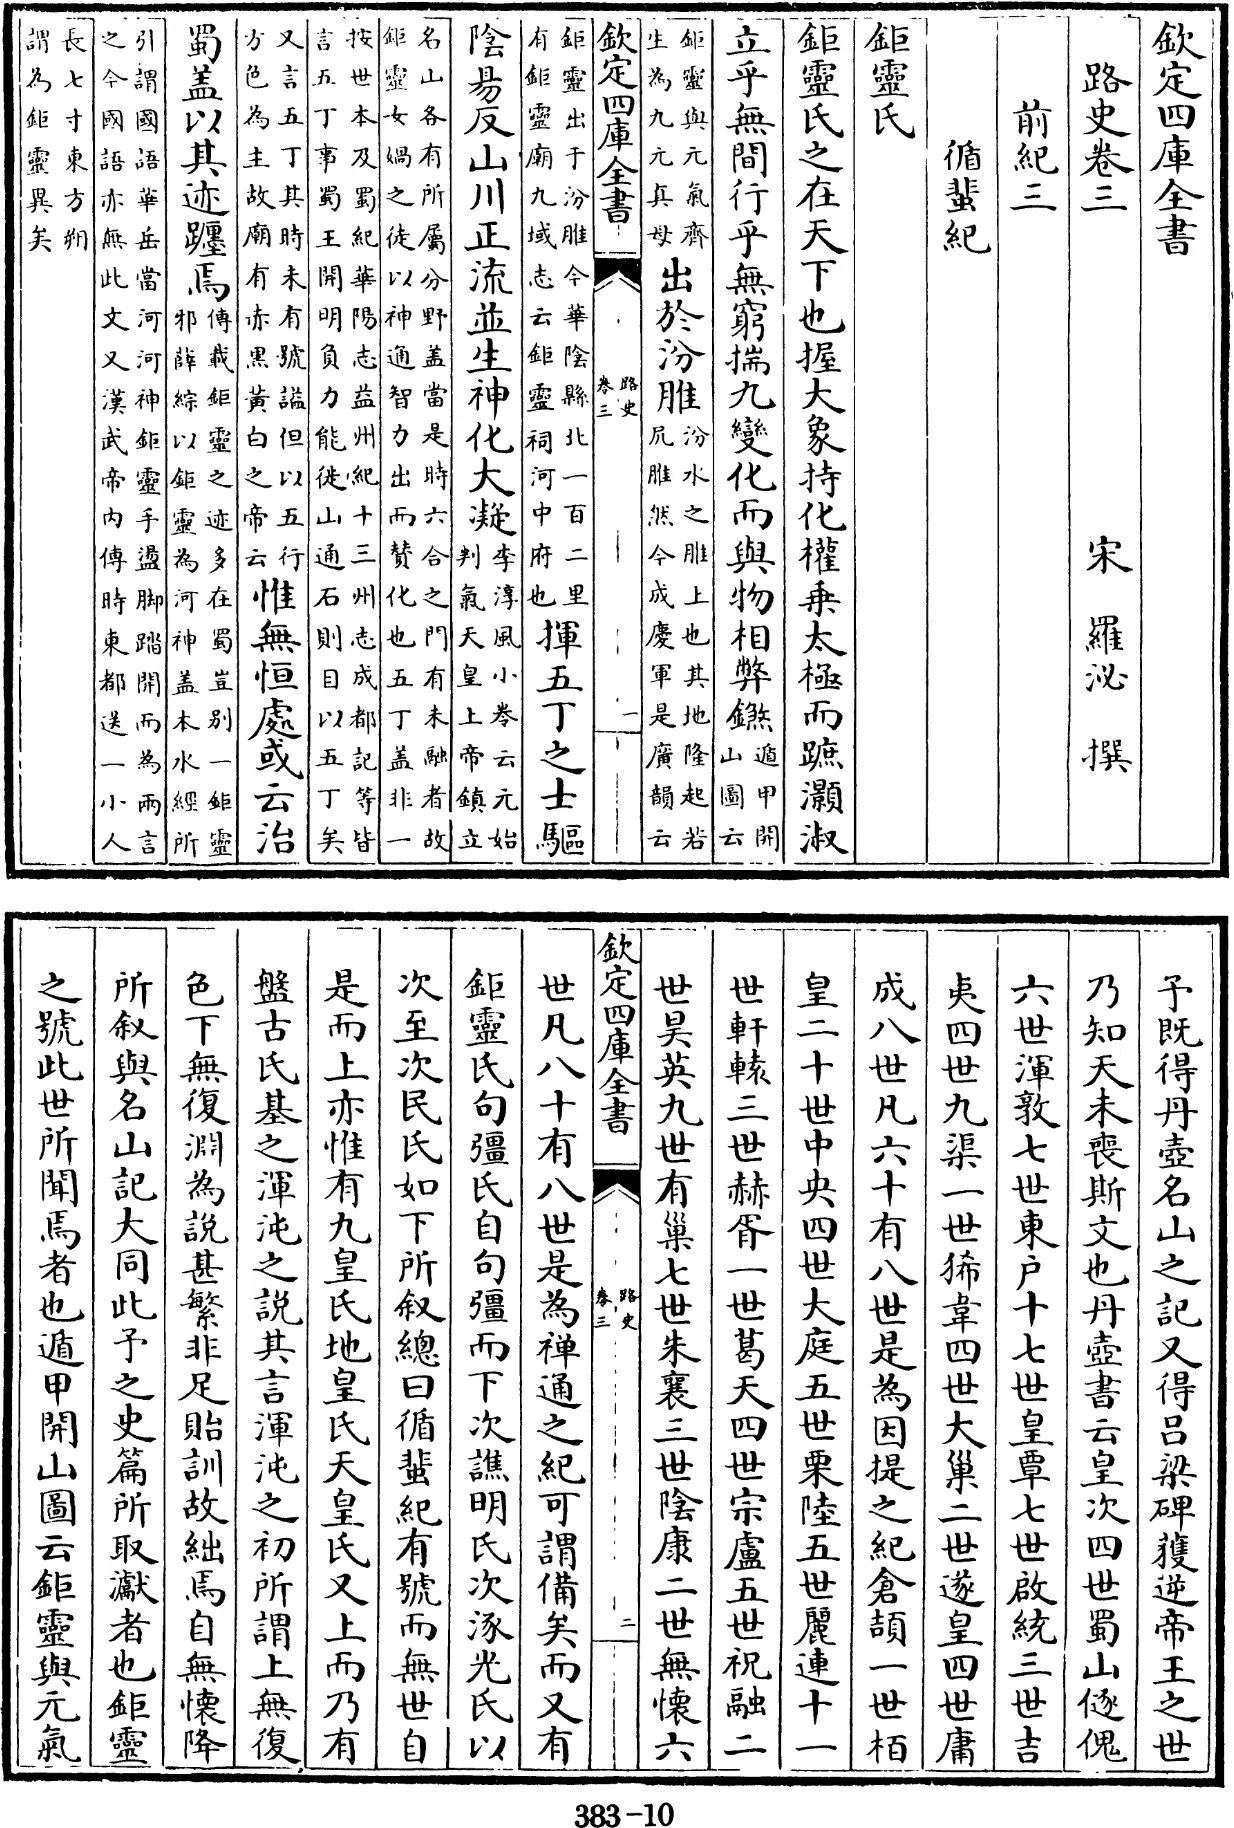 欽定四庫全書
路史卷三
宋 羅泌 撰
前紀三
循蜚紀
鉅靈氏
鉅靈氏之在天下也握大象持化權乗太極而蹠灝淑
立乎無間行乎無窮揣九變化而與物相弊鐎遁甲開山圖云
鉅靈與元氣齊生為九元真母出於汾脽汾水之脽上也其地隆起若尻脽然今成慶軍是廣韻云
欽定四庫全書
路史
卷三
一
鉅靈出于汾脽今華陰縣北一百二里有鉅靈廟九域志云鉅靈祠河中府也揮五丁之士驅
陰昜反山川正流並生神化大凝李淳風小卷云元始判氣天皇上帝鎮立
名山各有所屬分野盖當是時六合之門有未融者故鉅靈女媧之徒以神通智力出而賛化也五丁盖非一
按世本及蜀紀華陽志益州紀十三州志成都記等皆言五丁事蜀王開明負力能徙山通石則目以五丁矣
又言五丁其時未有號諡但以五行方色為主故廟有赤黒黃白之帝云惟無恒處或云治
蜀盖以其迹躔焉傳載鉅靈之迹多在蜀豈别一鉅靈邪薛綜以鉅靈為河神盖本水經所
引謂國語華岳當河河神鉅靈手盪脚踏開而為兩言之今國語亦無此文又漢武帝内傳時東都送一小人
長七寸東方朔謂為鉅靈異矣
予既得丹壺名山之記又得吕梁碑獲逆帝王之世
乃知天未喪斯文也丹壺書云皇次四世蜀山㒔傀
六世渾敦七世東户十七世皇覃七世啟統三世吉
夷四世九渠一世狶韋四世大巢二世遂皇四世庸
成八世凡六十有八世是為因提之紀倉頡一世栢
皇二十世中央四世大庭五世栗陸五世麗連十一
世軒轅三世赫胥一世葛天四世宗盧五世祝融二
世昊英九世有巢七世朱襄三世陰康二世無懷六
欽定四庫全書
路史
卷三
二
世凡八十有八世是為禅通之紀可謂備矣而又有
鉅靈氏句彊氏自句彊而下次譙明氏次涿光氏以
次至次民氏如下所叙總曰循蜚紀有號而無世自
是而上亦惟有九皇氏地皇氏天皇氏又上而乃有
盤古氏基之渾沌之説其言渾沌之初所謂上無復
色下無復淵為説甚繁非足貽訓故絀焉自無懷降
所叙與名山記大同此予之史篇所取瀛者也鉅靈
之號此世所聞焉者也遁甲開山圖云鉅靈與元氣
383-10